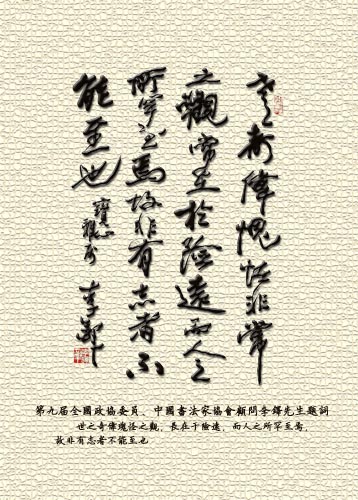 世之奇偉瑰怪非常
之觀常在於險遠而人之
所罕至焉故非有志者不
能至也
李鐸
第九届全國政協委員、中國書法家協會顧問李鐸先生題詞
世之奇偉瑰怪之觀，長在于險遠，而人之所罕至焉，
故非有志者不能至也